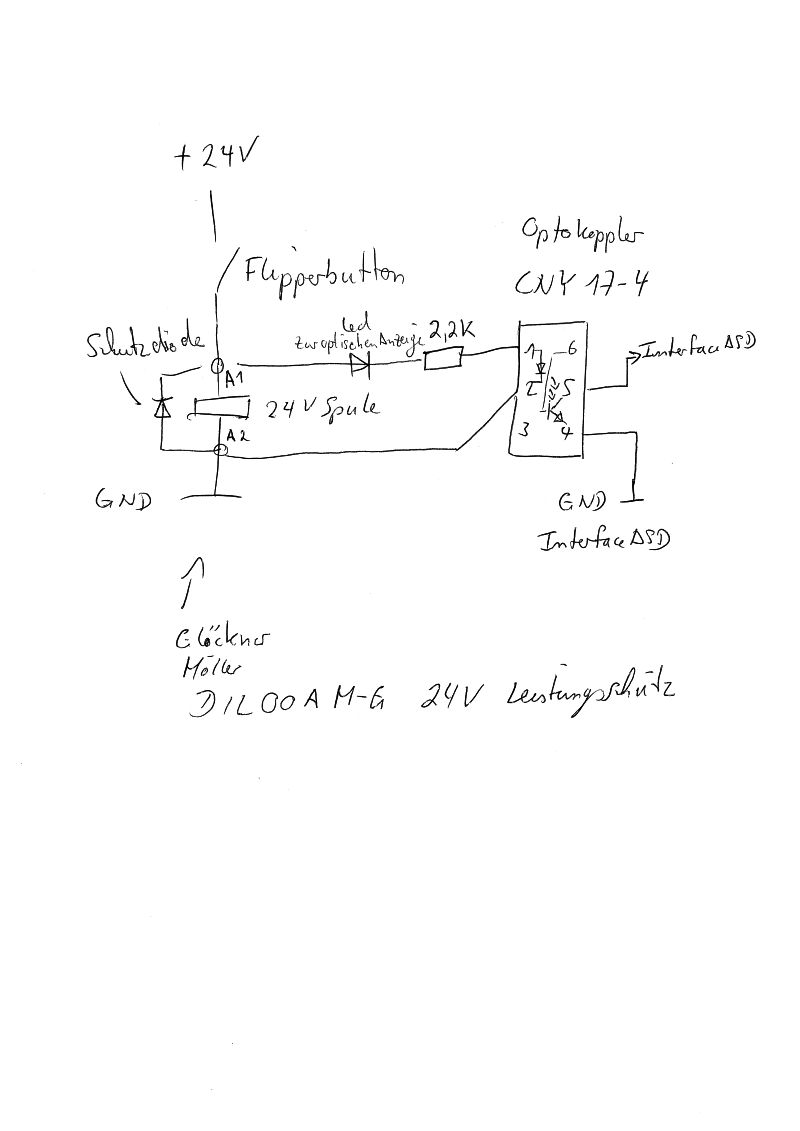 + 24V
Flipperbutton
Optokoppler
CNY 17-4
Schutzdiode
led
zur optischen Anzeige
2,2K
A1
24V Spule
A2
1 6
2 5
3 4
Interface ASD
GND
GND
Interface ASD
Glöckner
Möller
DIL00AM-G 24V Leistungsschütz